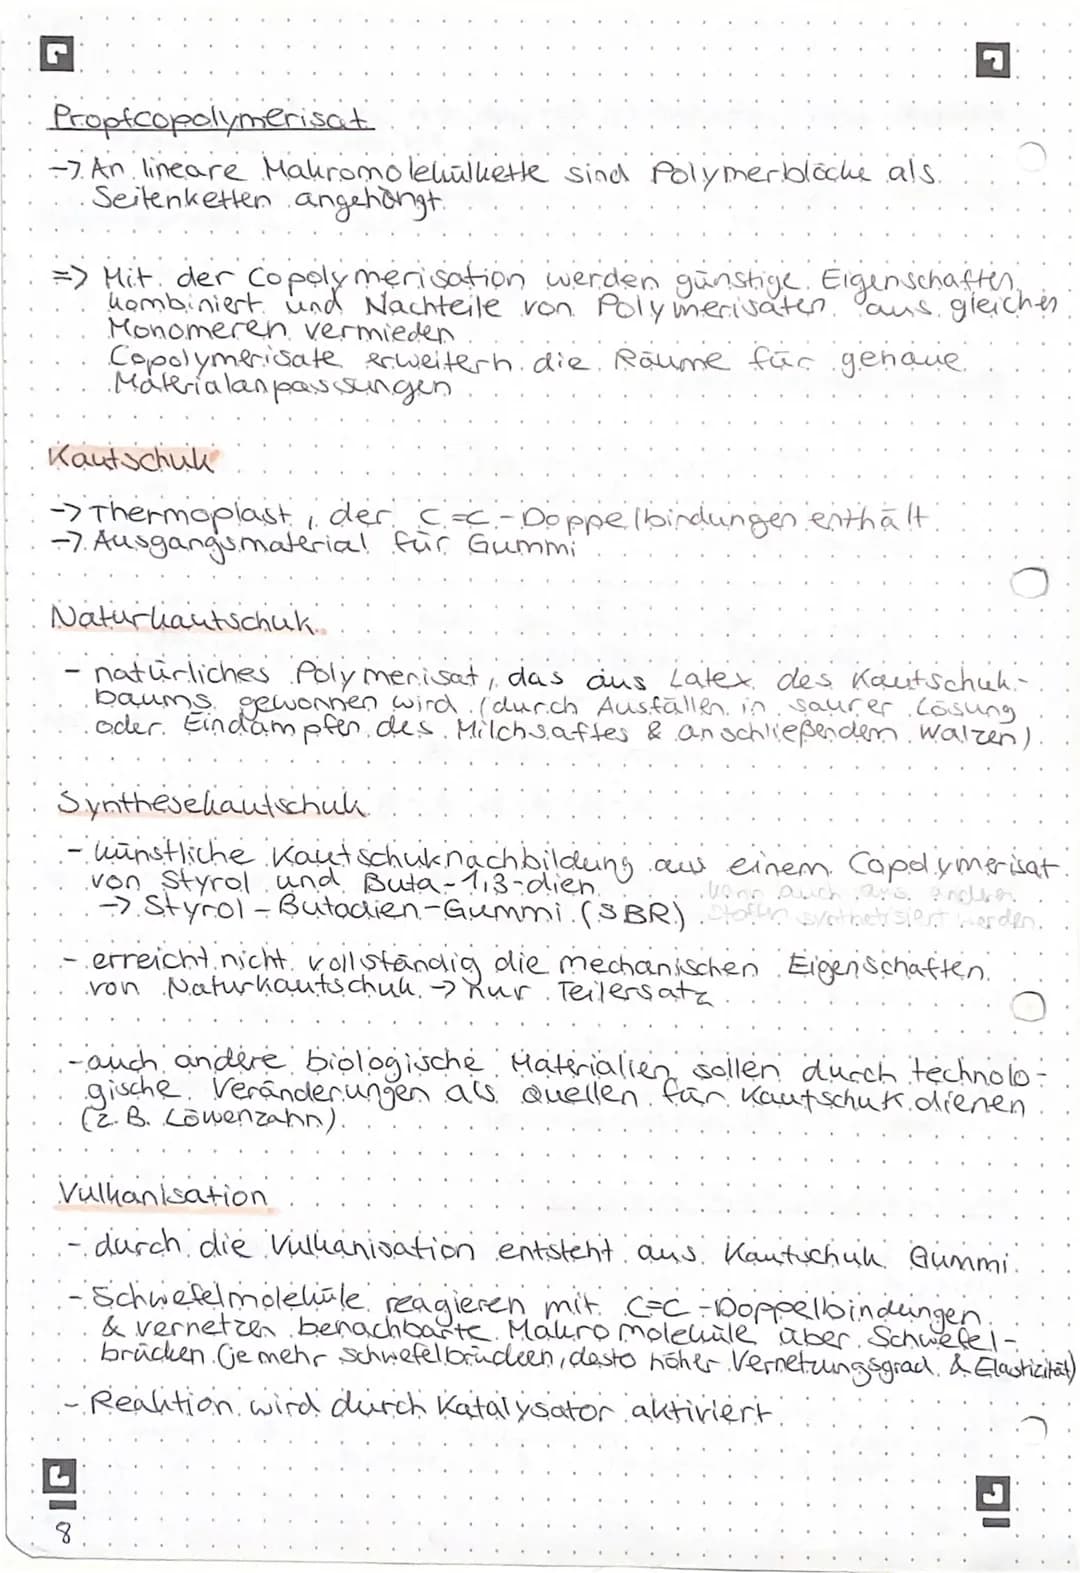 Propfcopolymerisat
-> An lineare Makromolekülkette sind Polymerblöcke als
Seitenketten angehängt.
=> Mit der Copolymerisation werden günstige Eigenschaften
kombiniert und Nachteile von Polymerisaten aus gleichen
Monomeren vermieden
Copolymerisate erweitern die Räume für genaue
Materialanpassungen
Kautschuk
-> Thermoplast, der C=C-Doppelbindungen enthält.
-> Ausgangsmaterial für Gummi
Naturkautschuk
- natürliches Polymerisat, das aus Latex des Kautschuk-
baums gewonnen wird (durch Ausfällen in saurer Lösung
oder Eindampfen des Milchsaftes & anschließendem Walzen).
Synthesekautschuk
- künstliche Kautschuknachbildung aus einem Copolymerisat
von Styrol und Buta-1,3-dien
kann auch aus anderen
-> Styrol-Butadien-Gummi (SBR)
Stoffen synthetisiert werden.
- erreicht nicht vollständig die mechanischen Eigenschaften
von Naturkautschuk -> nur Teilersatz
- auch andere biologische Materialien sollen durch technolo-
gische Veränderungen als Quellen für Kautschuk dienen
(z.B. Löwenzahn).
Vulkanisation
- durch die Vulkanisation entsteht aus Kautschuk Gummi.
- Schwefelmoleküle reagieren mit C=C-Doppelbindungen
& vernetzen benachbarte Makromoleküle über Schwefel-
brücken (je mehr Schwefelbrücken, desto höher Vernetzungsgrad & Elastizität)
- Reaktion wird durch Katalysator aktiviert.
8